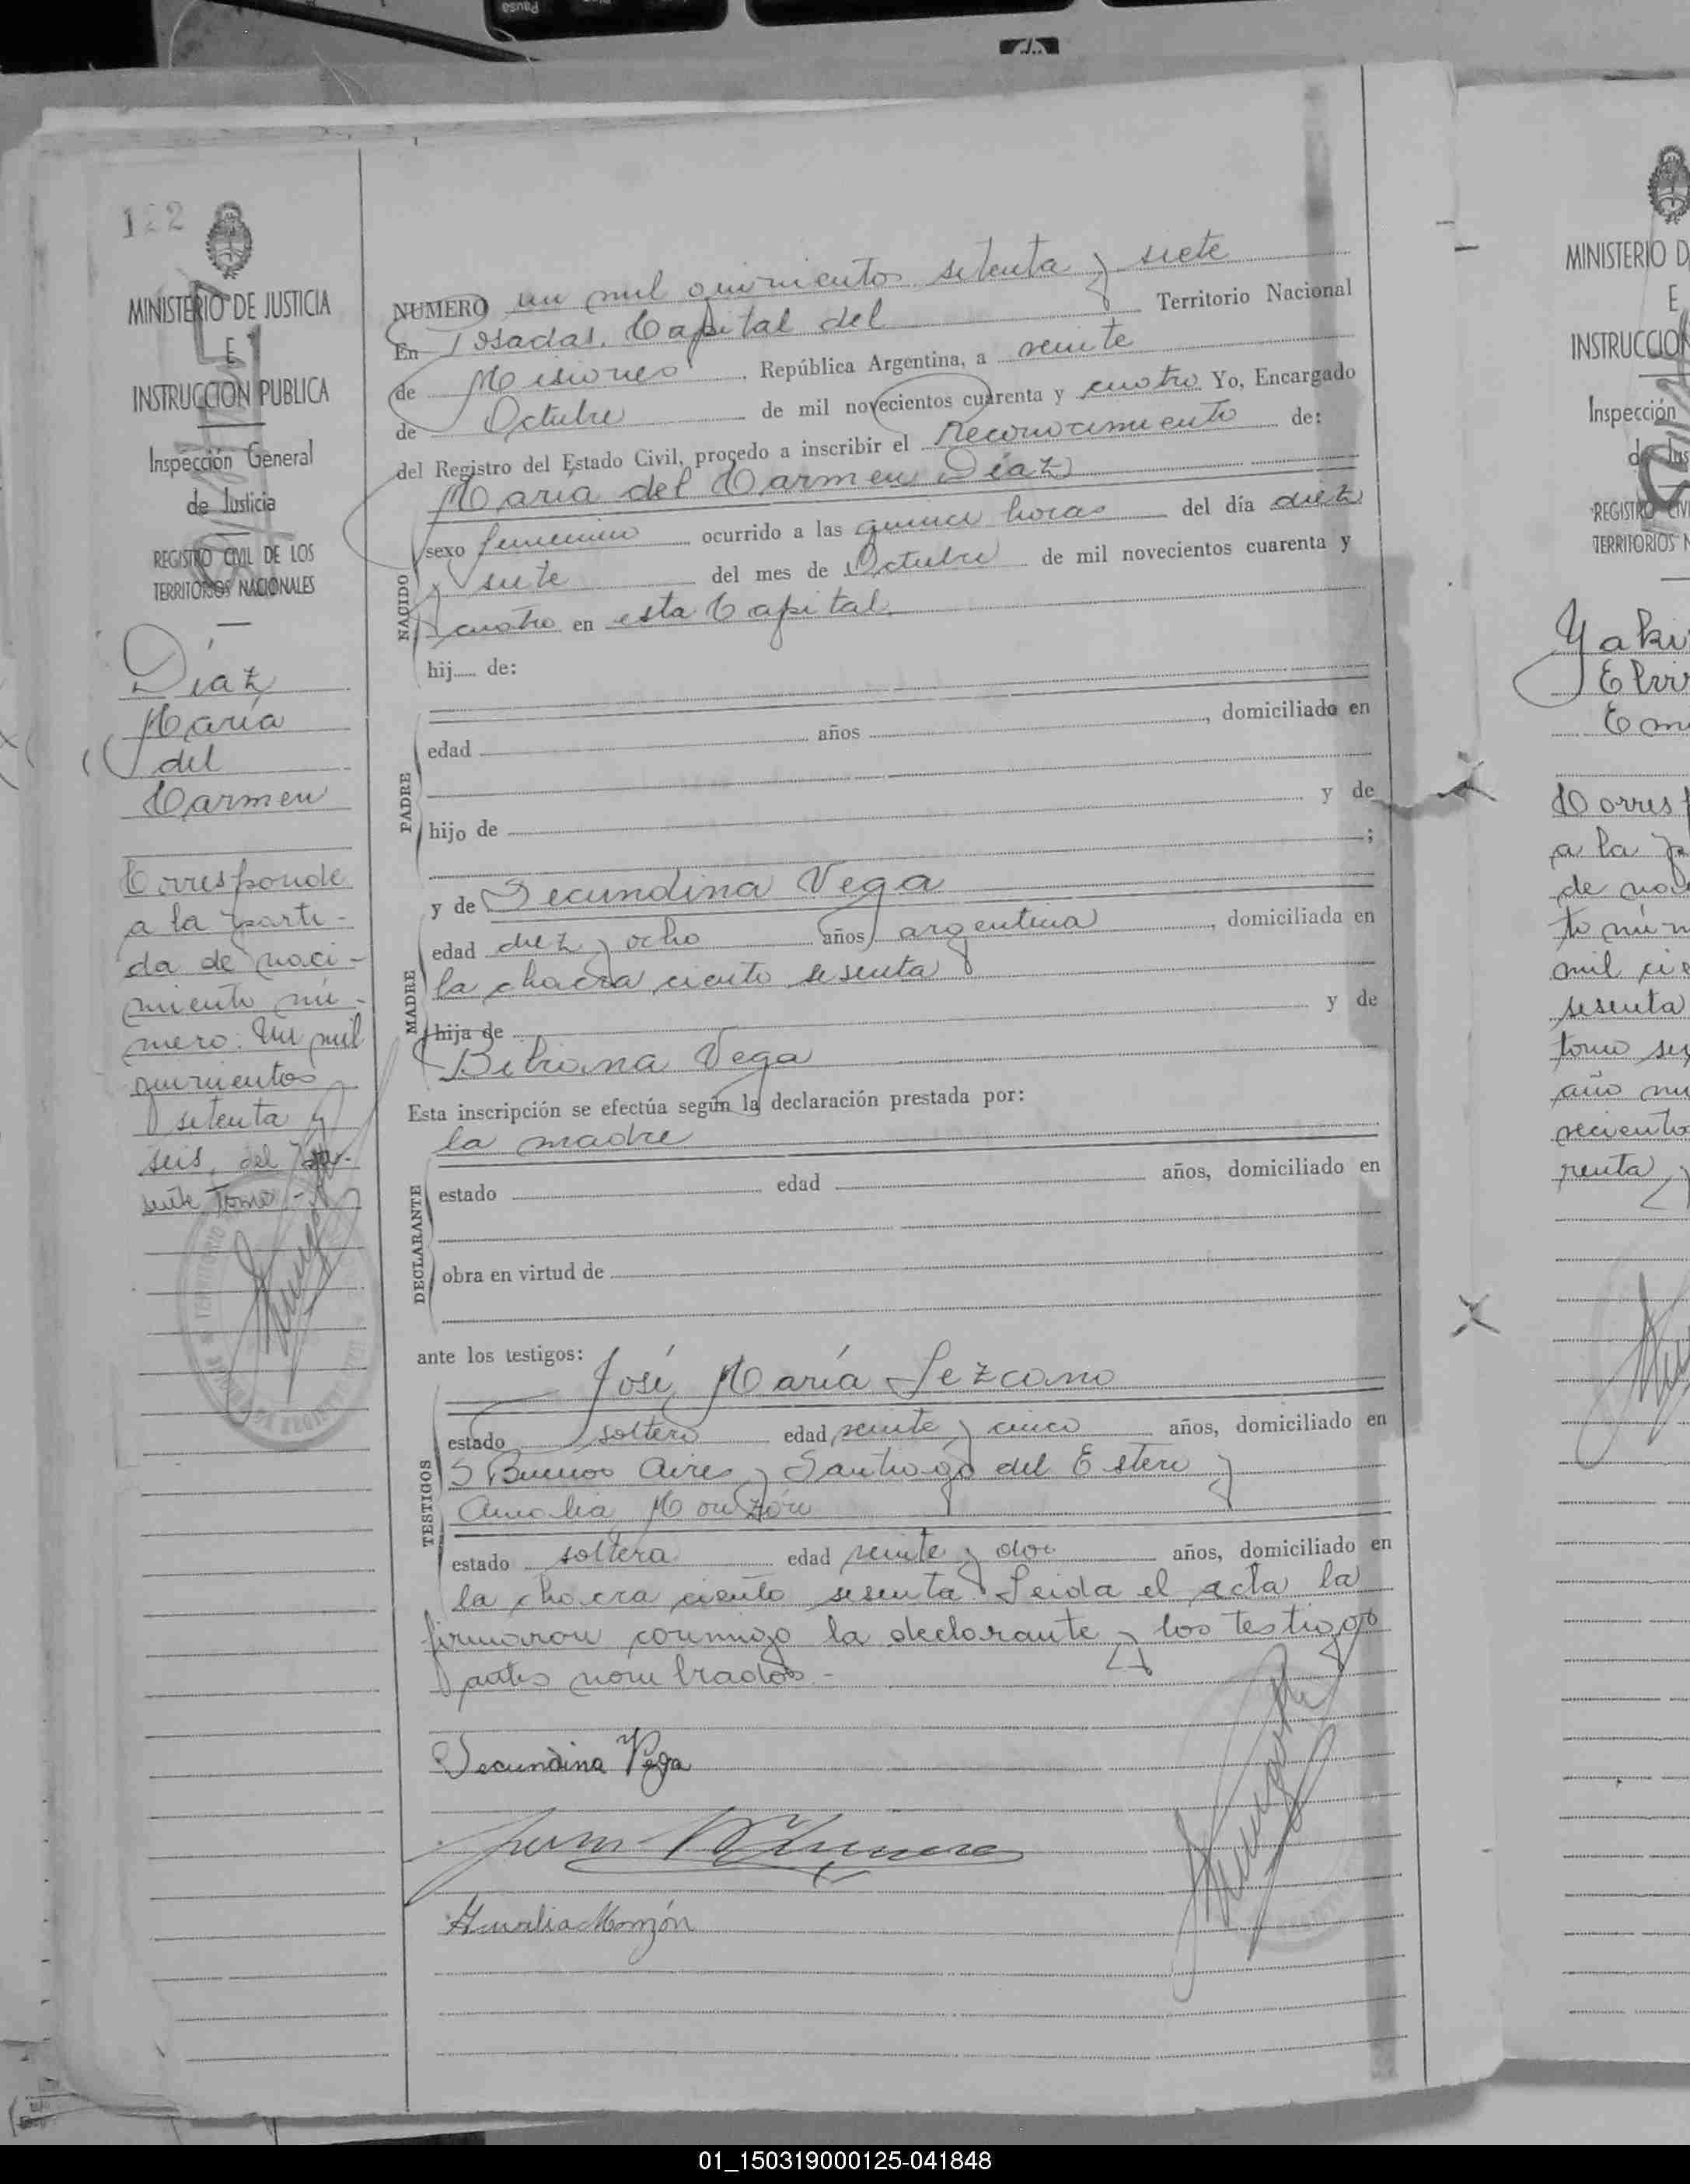 Pausa
122
MINISTERIO DE JUSTICIA
E
INSTRUCCION PUBLICA
Inspección General
de Justicia
REGISTRO CIVIL DE LOS
TERRITORIOS NACIONALES
Díaz
María
del
Carmen
Corresponde
a la parti-
da de naci-
miento nú-
mero: Un mil
quinientos
setenta y
seis, del pre-
sente Tomo.-
NUMERO un mil quinientos setenta y siete
En Posadas, Capital del Territorio Nacional
de Misiones República Argentina, a veinte
de Octubre de mil novecientos cuarenta y cuatro Yo, Encargado
del Registro del Estado Civil, procedo a inscribir el Reconocimiento de:
María del Carmen Díaz
NACIDO
sexo femenino ocurrido a las quince horas del día diez
y siete del mes de Octubre de mil novecientos cuarenta y
cuatro en esta Capital
hij de:
PADRE
edad años , domiciliado en
hijo de y de
;
MADRE
y de Secundina Vega
edad diez y ocho años argentina , domiciliada en
la chacra ciento sesenta
hija de y de
Bibiana Vega
Esta inscripción se efectúa según la declaración prestada por:
la madre
DECLARANTE
estado edad años, domiciliado en
obra en virtud de
ante los testigos:
José María Lezcano
TESTIGOS
estado soltero edad veinte y cinco años, domiciliado en
Buenos Aires y Santiago del Estero y
Amalia Monzón
estado soltera edad veinte y dos años, domiciliado en
la chacra ciento sesenta. Leida el acta la
firmaron conmigo la declarante y los testigos
antes nombrados.-
Secundina Vega
Amalia Monzón
MINISTERIO D
E
INSTRUCCION
Inspección
de Jus
REGISTRO CIVI
TERRITORIOS N
Corresp
a la p
de naci
to núm
mil cie
sesenta
tomo
año
renta y
01_150319000125-041848